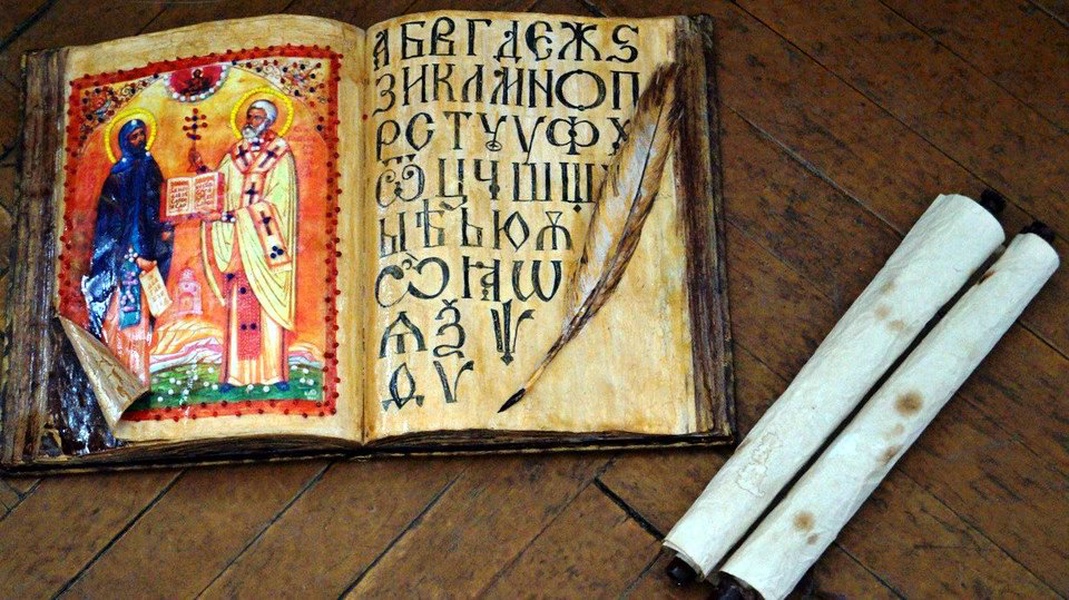 А Б В Г Д Є Ж Ѕ
З И К Л М Н О П
Р С Т Ꙋ У Ф Х
Ѿ Ц Ч Ш Щ
Ы Ѣ Ь Ю Ѫ
Ѽ Ꙗ Ѡ
Ѧ Ѯ Ѱ
Ѳ Ѵ